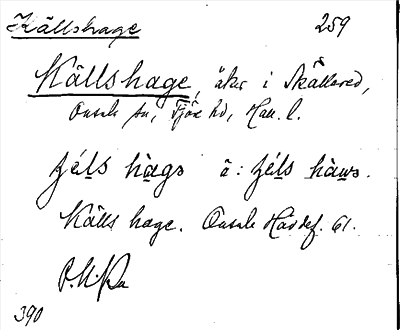 Källshage 259
Källshage, åker i Skällared,
Onsala sn, Fjäre hd, Hall. l.
hàgs å:
Källs hage. Onsala Havdef. 61.
390